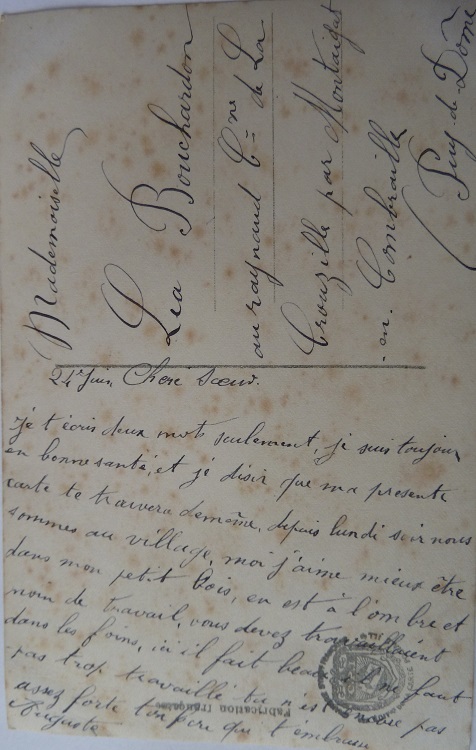 Mademoiselle
Léa Bouchardon
au raynaud Cne de La
Crouzille par Montaigut
en Combraille
(Puy-de-Dôme
24 Juin Chere Sœur.
je t'écris deux mots seulement, je suis toujour
en bonne santé, et je désir que ma presente
carte te trauvera demême, depuis lundi soir nous
sommes au village, moi j'aime mieux être
dans mon petit bois, en est à l'ombre et
moin de travail, vous devez travaillaient
dans les foins, ici il fait beau il ne faut
pas trop travaillé tu n'est pas
assez forte ton frère qui t'embrasse
Auguste
Fabrication française